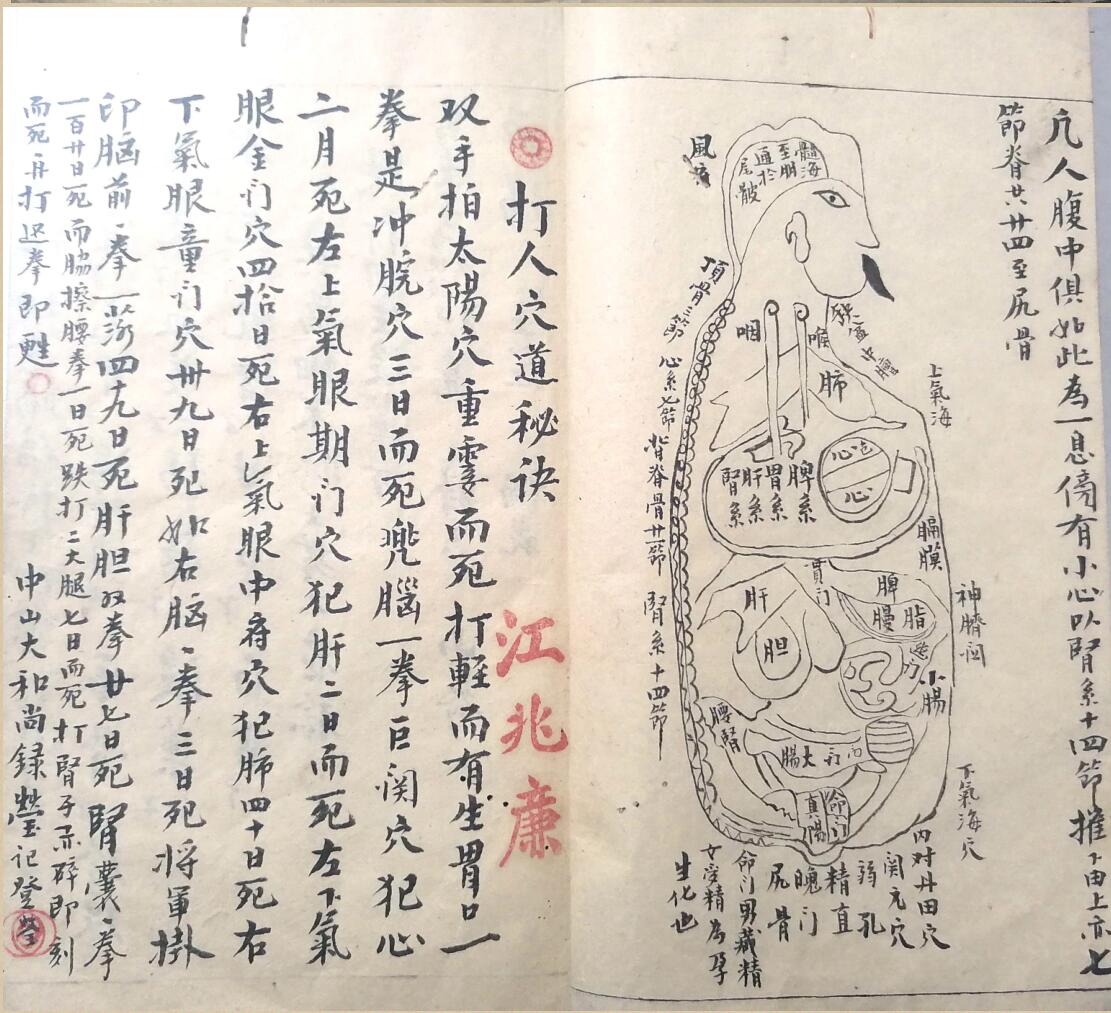 凢人腹中俱如此為一息傍有小心以腎系十四節推下由上亦七
節脊共廿四至尻骨
髓海
至腦
通於
尾骶
風府
頂骨三節
心系七節
背脊骨廿一節
腎系十四節
咽
喉
肺
上氣海
脾系
胃系
肝系
腎系
心
膈膜
神臍
賁门
肝
胆
脾
脂
膜
小腸
腰腎
大腸
命门
真陽
下氣海穴
内对丹田穴
関元穴
溺孔
精直
魄门
尻骨
命门男藏精
女受精為孕
生化也
打人穴道秘诀
江兆廉
双手拍太陽穴重靈而死打軽而有生胃口一
拳是冲脘穴三日而死兠腦一拳巨阕穴犯心
二月死左上氣眼期门穴犯肝二日而死左下氣
眼金门穴四拾日死右上氣眼中府穴犯肺四十日死右
下氣眼童门穴卅九日死如右脑一拳三日死将軍掛
印脑前一拳四十九日死肝胆双拳廿七日死腎囊一拳
一百廿日死而脇擦腰拳一日死跌打二大腿七日而死打腎子亦碎即刻
而死再打迟拳即甦
中山大和尚録 登瑩記